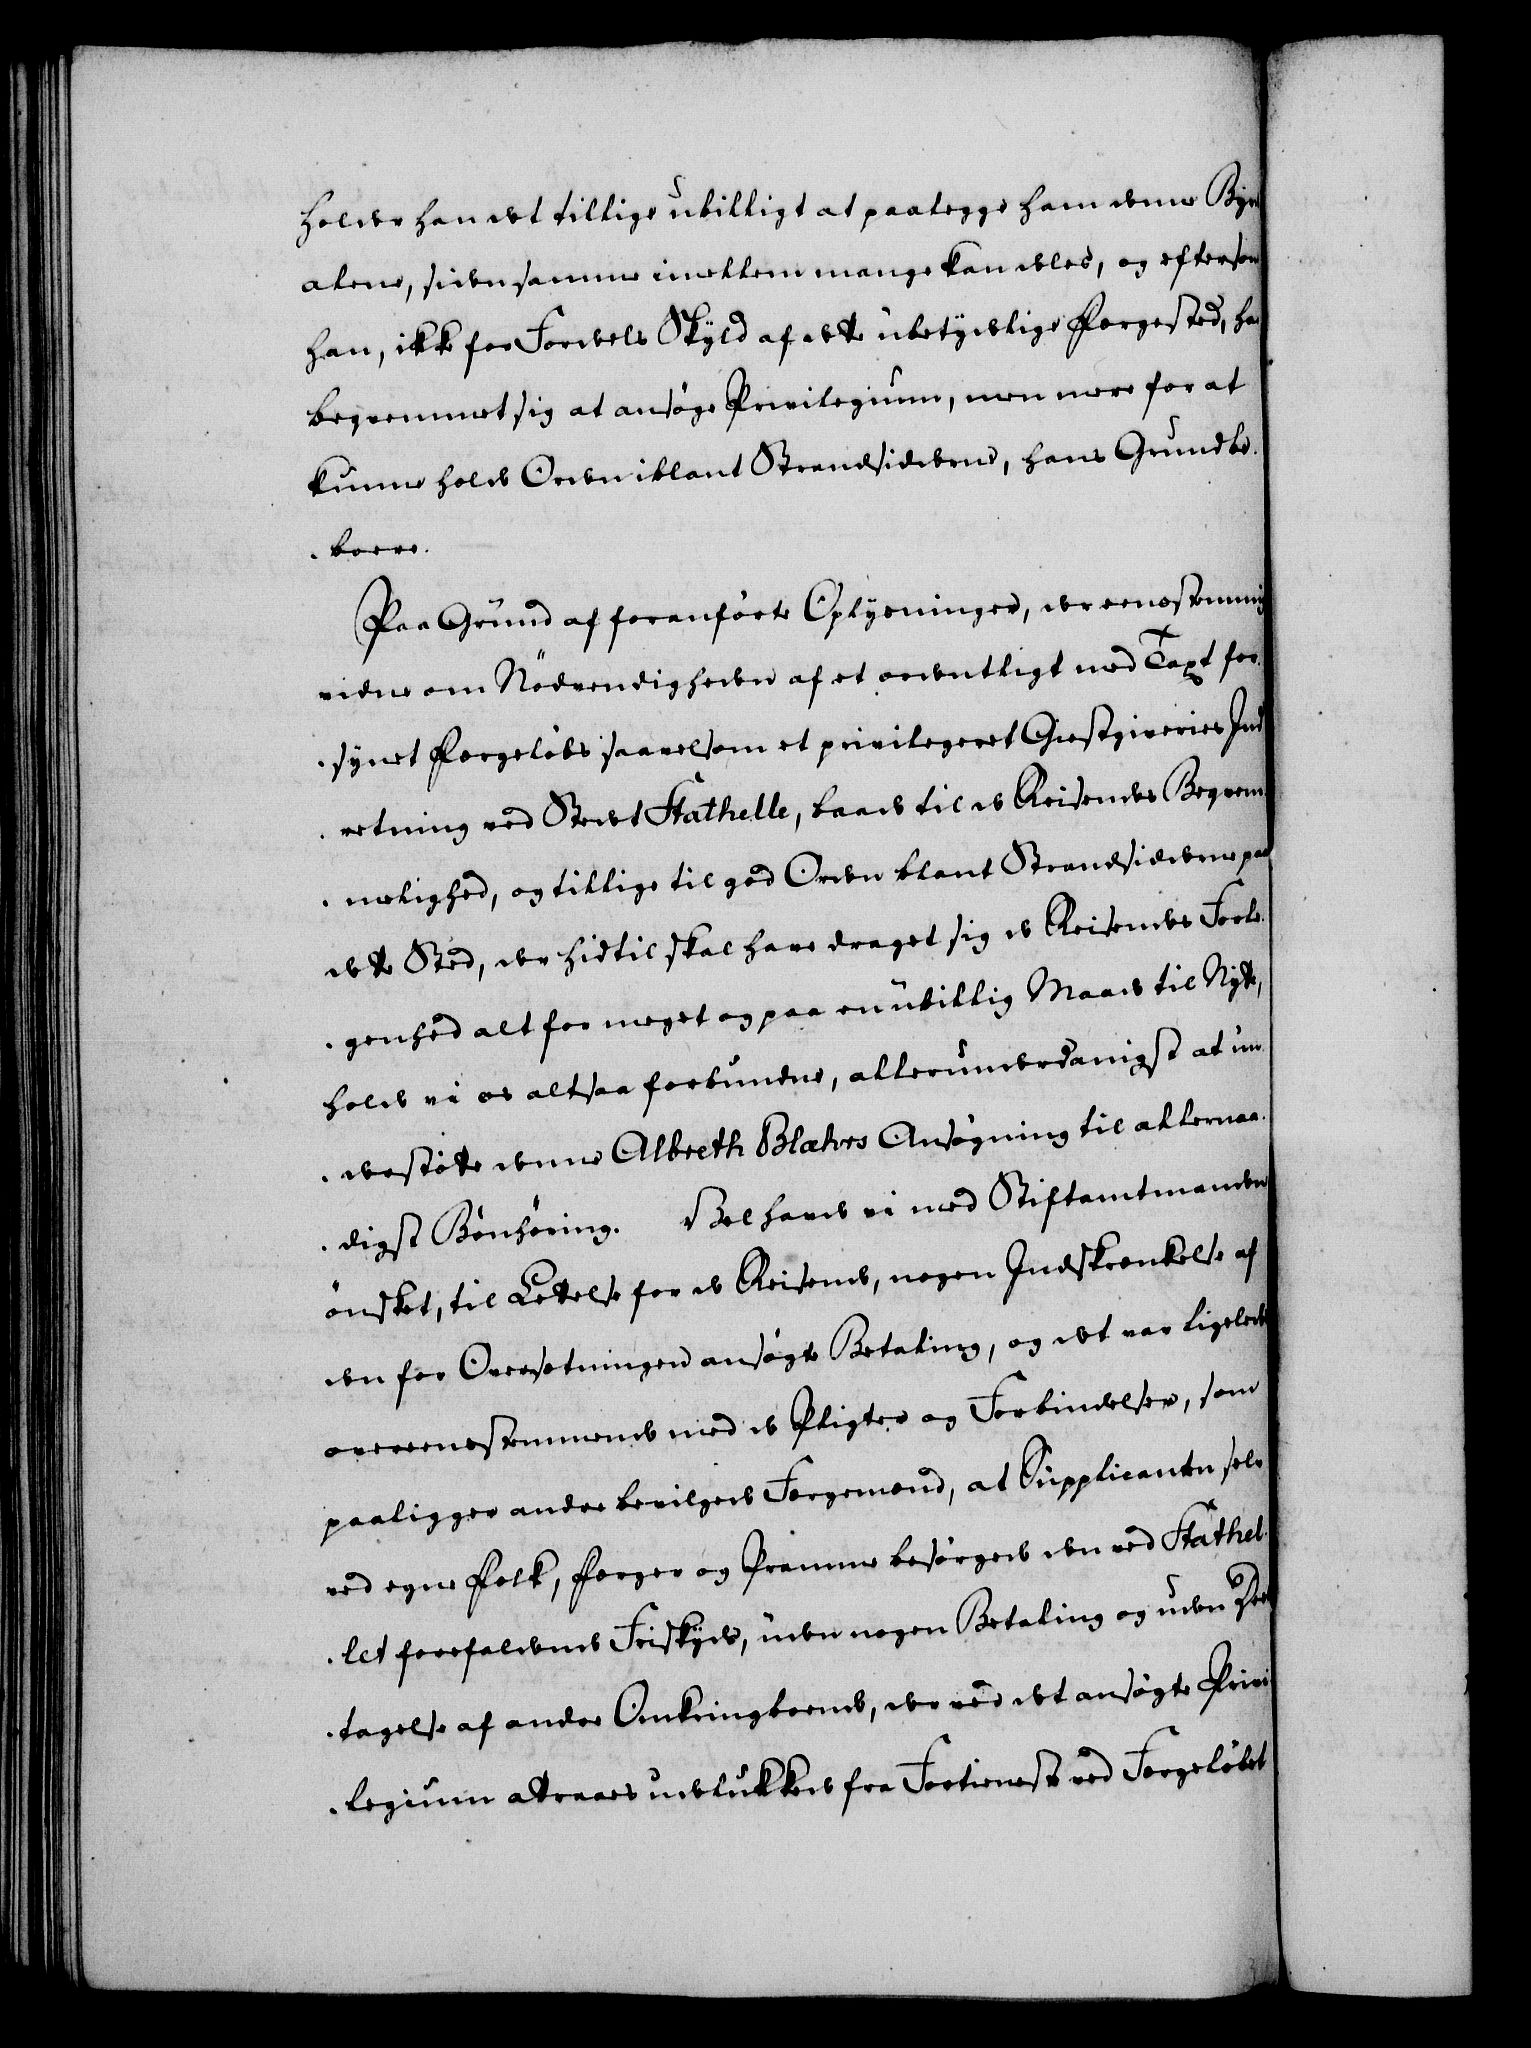 holder han det tillige ubilligt at paalegge ham denne Byrde
alene, siden samme imellem mange kan deles, og eftersom
han, ikke for Fordels Skyld af dette ubetydelige Færgested, har
beqvemmet sig at ansøge Privilegium, men mere for at
kunne holde Orden iblant Strandsidderne, hans Grundbe-
boere.
Paa Grund af foranførte Oplysninger, der eenstemmig
vidne om Nødvendigheden af et ordentligt med Taxt for-
synet Færgeløbs saavelsom et privilegeret Giestgiveries Ind-
retning ved Stedet Stathelle, baade til de Reisendes Beqvem-
melighed, og tillige til god Orden blant Strandsidderne paa
dette Sted, der hidtil skal have draget sig de Reisendes Forle-
genhed alt for meget og paa en ubillig Maade til Nytte,
holde vi os altsaa forbundne, allerunderdanigst at un-
derstøtte denne Albreth Blæhrs Ansøgning til allernaa-
digst Bønhøring. Vel havde vi med Stiftamtmanden
ønsket, til Lettelse for de Reisende, nogen Indskrænkelse af
den for Oversetningen ansøgte Betaling, og det var ligeledes
overeensstemmende med de Pligter og Forbindelser, som
paaligger andre bevilgede Færgemænd, at Supplicanten selv
ved egne Folk, Færger og Pramme besørgede den ved Stathel-
let forefaldende Friskyds, uden nogen Betaling og uden Deel-
tagelse af andre Omkringboende, der ved det ansøgte Privi-
legium attraaes udelukkede fra Fortieneste ved Færgeløbet